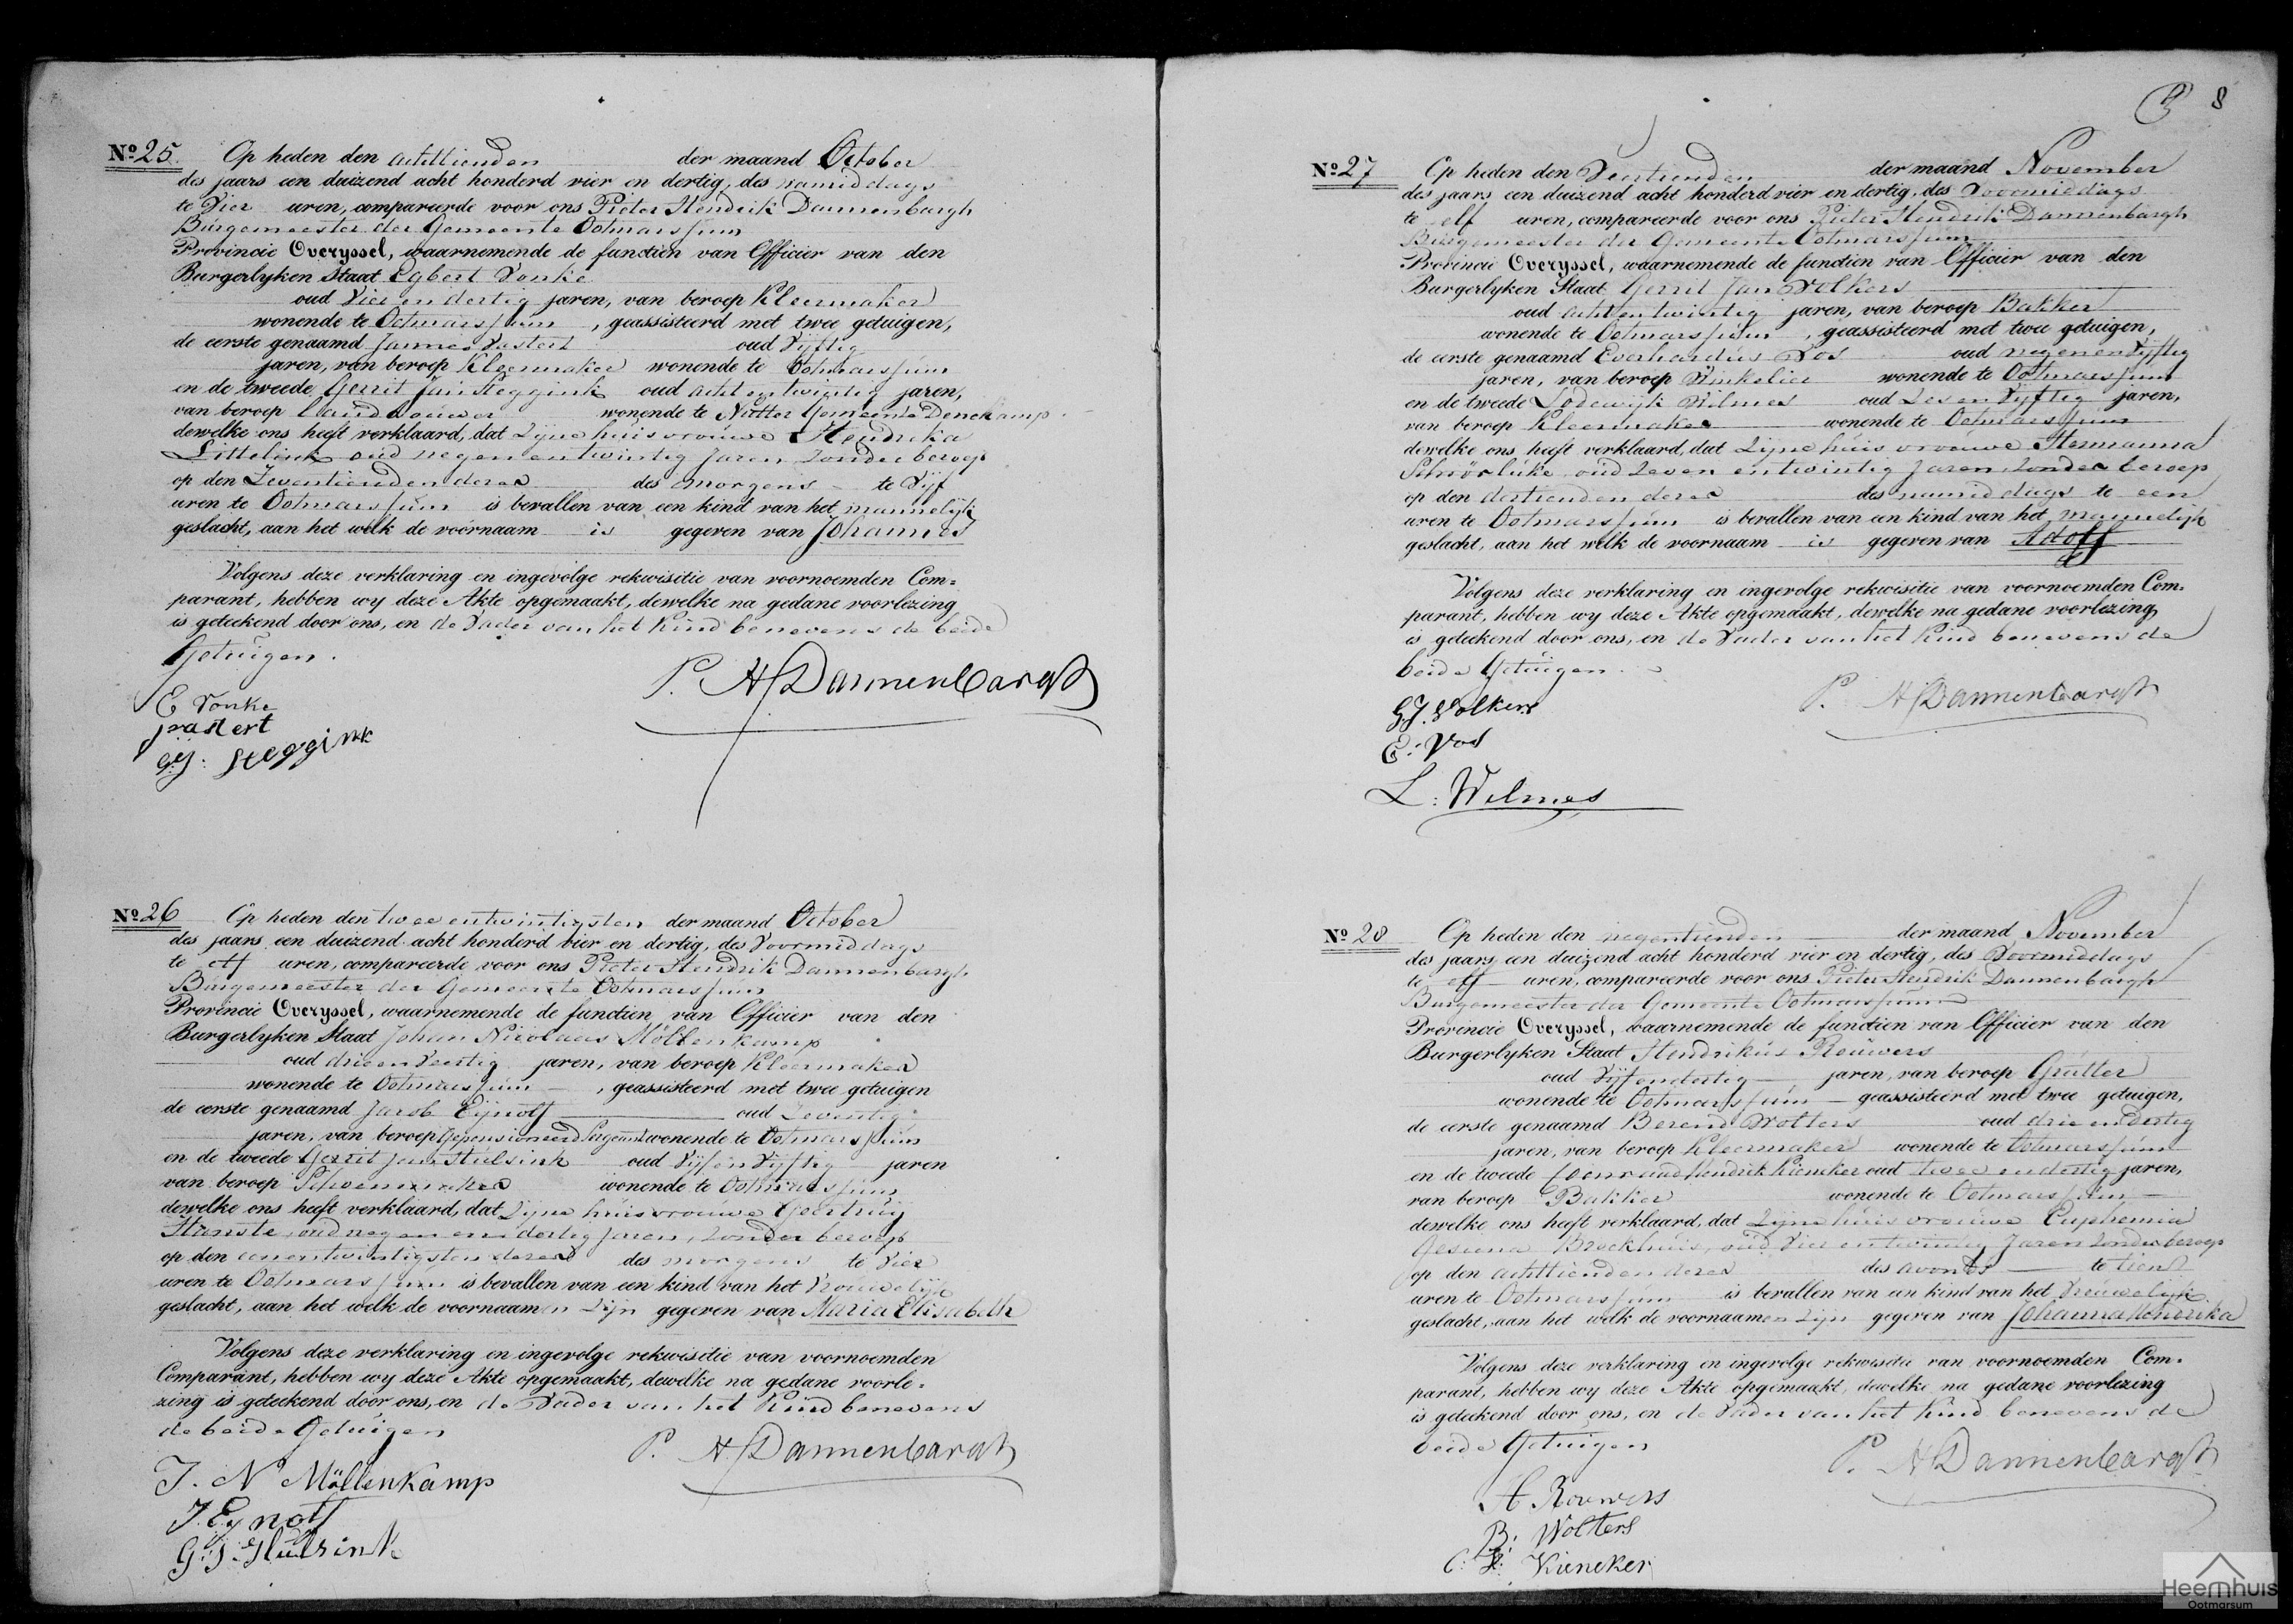 No 25. Op heden den achttienden der maand October
des jaars een duizend acht honderd vier en dertig, des namiddags
te Vier uren, compareerde voor ons Pieter Hendrik Dannenbargh
Burgemeester der Gemeente Ootmarssum
Provincie Overyssel, waarnemende de functiën van Officier van den
Burgerlyken Staat Egbert Vonke
oud Vier en dertig jaren, van beroep Kleermaker
wonende te Ootmarssum, geassisteerd met twee getuigen,
de eerste genaamd Jannes Vastert oud Vijftig
jaren, van beroep Kleermaker wonende te Ootmarssum
en de tweede Gerrit Jan Steggink oud acht en twintig jaren,
van beroep Landbouwer wonende te Nutter Gemeente Denekamp
dewelke ons heeft verklaard, dat Zijne huisvrouwe Hendrika
oud negen en twintig Jaren Zonder beroep
op den Zeventienden dezer des morgens te Vijf
uren te Ootmarssum is bevallen van een kind van het mannelijk
geslacht, aan het welk de voornaam is gegeven van Johannes
Volgens deze verklaring en ingevolge rekwisitie van voornoemden Com=
parant, hebben wy deze Akte opgemaakt, dewelke na gedane voorlezing
is geteekend door ons, en de Vader van het Kind benevens de beide
Getuigen.
P. H Dannenbargh
E Vonke
J Vastert
G.J: Steggink
No 26 Op heden den twee entwintigsten der maand October
des jaars een duizend acht honderd vier en dertig, des Voormiddags
te elf uren, compareerde voor ons Pieter Hendrik Dannenbargh
Burgemeester der Gemeente Ootmarssum
Provincie Overyssel, waarnemende de functiën van Officier van den
Burgerlyken Staat Johan Nicolaas Möllenkamp
oud drieenVeertig jaren, van beroep Kleermaker
wonende te Ootmarssum, geassisteerd met twee getuigen
de eerste genaamd Jacob Eijnoth oud Zeventig
jaren, van beroep Gepensioneerd Sergeant wonende te Ootmarssum
en de tweede Gerrit Jan Hulsink oud VijfenVijftig jaren
van beroep Schoenmaker wonende te Ootmarssum
dewelke ons heeft verklaard, dat Zijne huisvrouwe Geertruij
oud negen en dertig Jaren, Zonder beroep
op den eenentwintigsten dezer des morgens te Vier
uren te Ootmarssum is bevallen van een kind van het Vrouwelijk
geslacht, aan het welk de voornaamen Zijn gegeven van Maria Elisabeth
Volgens deze verklaring en ingevolge rekwisitie van voornoemden
Comparant, hebben wy deze Akte opgemaakt, dewelke na gedane voorle=
zing is geteekend door ons, en de Vader van het Kind benevens
de beide Getuigen
P. H. Dannenbargh
J. N Möllenkamp
J. Eynoth
G: J: Hulsink
8
No 27 Op heden den Veertienden der maand November
des jaars een duizend acht honderd vier en dertig, des Voormiddags
te elf uren, compareerde voor ons Pieter Hendrik Dannenbargh
Burgemeester der Gemeente Ootmarssum
Provincie Overyssel, waarnemende de functiën van Officier van den
Burgerlyken Staat Gerrit Jan Volkers
oud achtentwintig jaren, van beroep Bakker
wonende te Ootmarssum, geassisteerd met twee getuigen,
de eerste genaamd Everhardus Vos oud negenenVijftig
jaren, van beroep Winkelier wonende te Ootmarssum
en de tweede Lodewijk Wilmes oud ZesenVijftig jaren,
van beroep Kleermaker wonende te Ootmarssum
dewelke ons heeft verklaard, dat Zijne huisvrouwe Hermanna
oud Zeven entwintig Jaren Zonder beroep
op den dertienden dezer des namiddags te een
uren te Ootmarssum is bevallen van een kind van het mannelijk
geslacht, aan het welk de voornaam is gegeven van Adolf
Volgens deze verklaring en ingevolge rekwisitie van voornoemden Com=
parant, hebben wy deze Akte opgemaakt, dewelke na gedane voorlezing
is geteekend door ons, en de Vader van het Kind benevens de
beide Getuigen
P. H Dannenbargh
G.J. Volkers
E: Vos
L: Wilmes
No 28 Op heden den negentienden der maand November
des jaars een duizend acht honderd vier en dertig, des Voormiddags
te elf uren, compareerde voor ons Pieter Hendrik Dannenbargh
Burgemeester der Gemeente Ootmarssum
Provincie Overyssel, waarnemende de functiën van Officier van den
Burgerlyken Staat Hendrikus Reuwers
oud Vijfendertig jaren, van beroep
wonende te Ootmarssum geassisteerd met twee getuigen,
de eerste genaamd Berend Wolters oud drie endertig
jaren, van beroep Kleermaker wonende te Ootmarssum
en de tweede Coenraad Hendrik Kieneker oud twee endertig jaren,
van beroep Bakker wonende te Ootmarssum
dewelke ons heeft verklaard, dat Zijne huisvrouwe Euphemia
Gesiena Broekhuis, oud Vier entwintig Jaren Zonder beroep
op den achttienden dezer des avonds te tien
uren te Ootmarssum is bevallen van een kind van het Vrouwelijk
geslacht, aan het welk de voornaamen Zijn gegeven van Johanna Hendrika
Volgens deze verklaring en ingevolge rekwisitie van voornoemden Com=
parant, hebben wy deze Akte opgemaakt, dewelke na gedane voorlezing
is geteekend door ons, en de Vader van het Kind benevens de
beide Getuigen
P. H Dannenbargh
H Rouwers
B: Wolters
C: H: Kieneker
Heemhuis
Ootmarsum